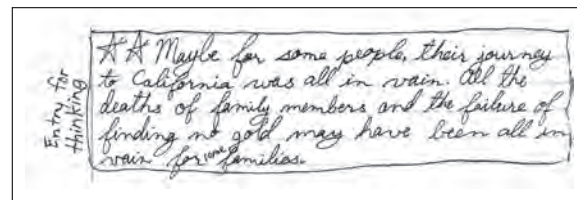 Entry for
thinking
☆☆ Maybe for some people, their journey
to California was all in vain. All the
deaths of family members and the failure of
finding no gold may have been all in
vain for some families.